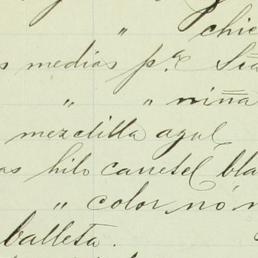 " chic
s medias pᵃ Sra
" " niña
mezclilla azul
as hilo carretel bla
" color nó n
balleta.